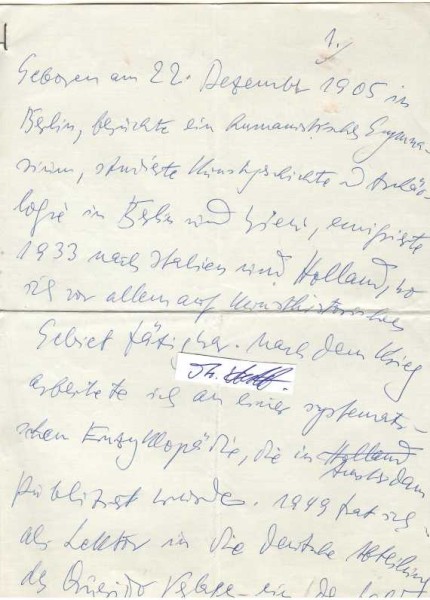 1.
Geboren am 22. Dezember 1905 in
Berlin, besuchte ein humanistisches Gymna-
sium, studierte Kunstgeschichte u Archäo-
logie in Berlin und Wien, emigrierte
1933 nach Italien und Holland, wo
ich vor allem auf kunsthistorischem
Gebiet tätig war. Nach dem Krieg
Th.
arbeitete ich an einer systemati-
schen Enzyklopädie, die in Holland
Amsterdam
publiziert wurde. 1949 trat ich
als Lektor in die deutsche Abteilung
des Querido Verlags ein